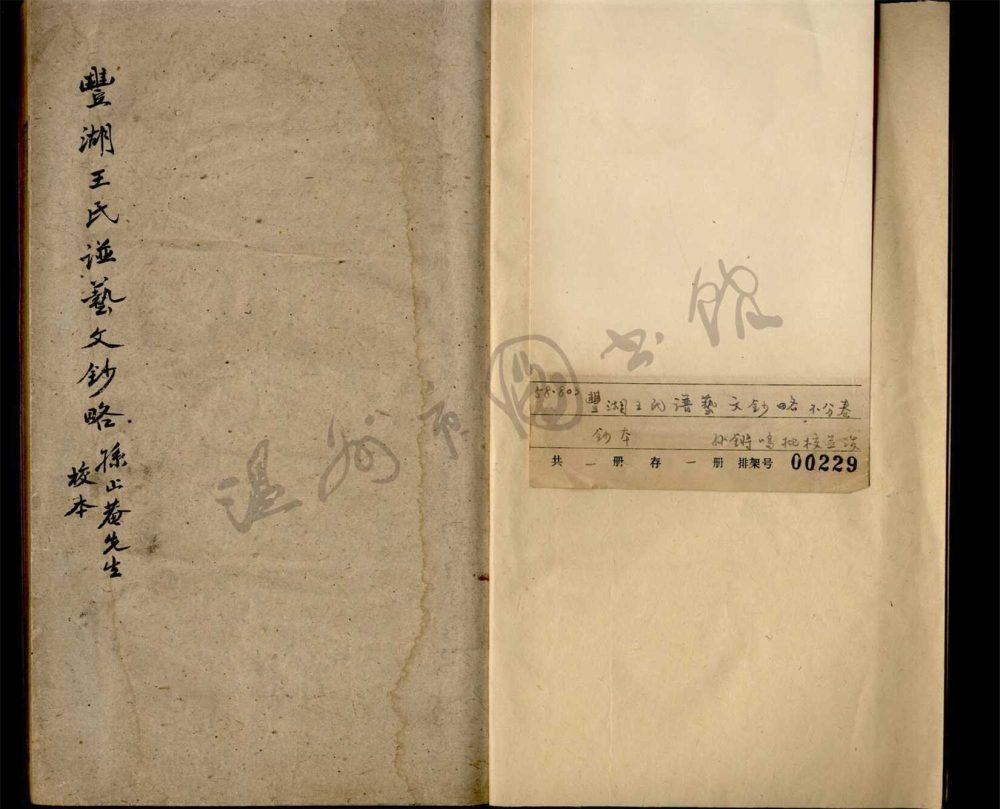 豐湖王氏譜藝文鈔略
孫止菴先生
校本
温州市圖书館
58.803
豐湖王氏譜藝文鈔略不分卷
鈔本 孙鏘鳴批校並跋
共一册存一册排架号 00229